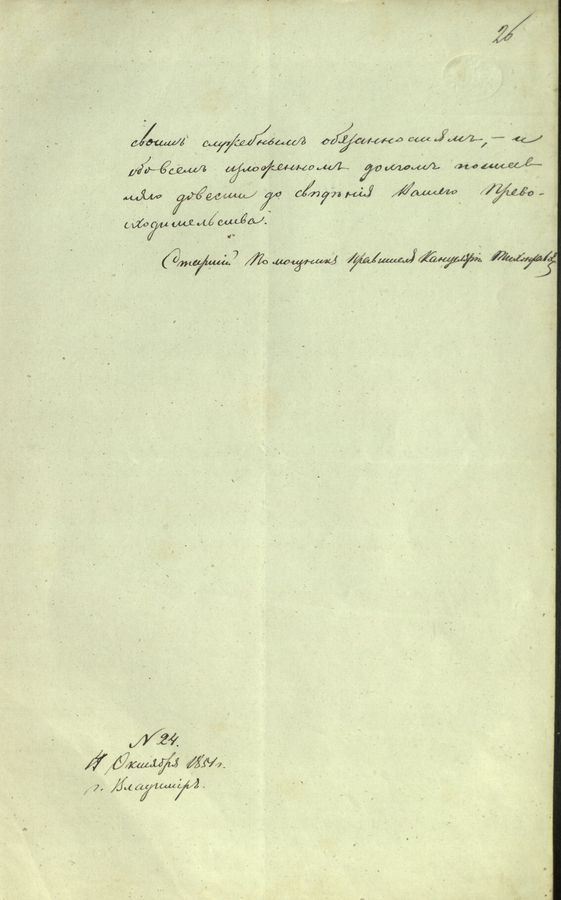 26
своимъ служебнымъ обязанностямъ, – и
обо всемъ изложенномъ долгомъ постав
ляю довести до свѣдѣнія Вашего Прево-
сходительства.
Старшій Помощникъ Правителя Канцеляріи
N 24.
Октября 1851 г.
г. Владиміръ.